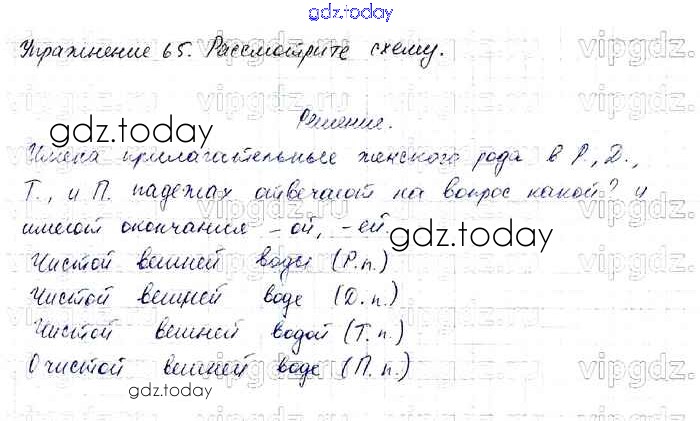 gdz.today
Упражнение 65. Рассмотрите схему.
Решение.
gdz.today
Имена прилагательные женского рода в Р., Д.,
Т., и П. падежах отвечают на вопрос какой? и
имеют окончания -ой, -ей.
gdz.today
Чистой вешней воды (Р.п.)
Чистой вешней воде (Д.п.)
Чистой вешней водой (Т.п.)
О чистой вешней воде (П.п.)
gdz.today